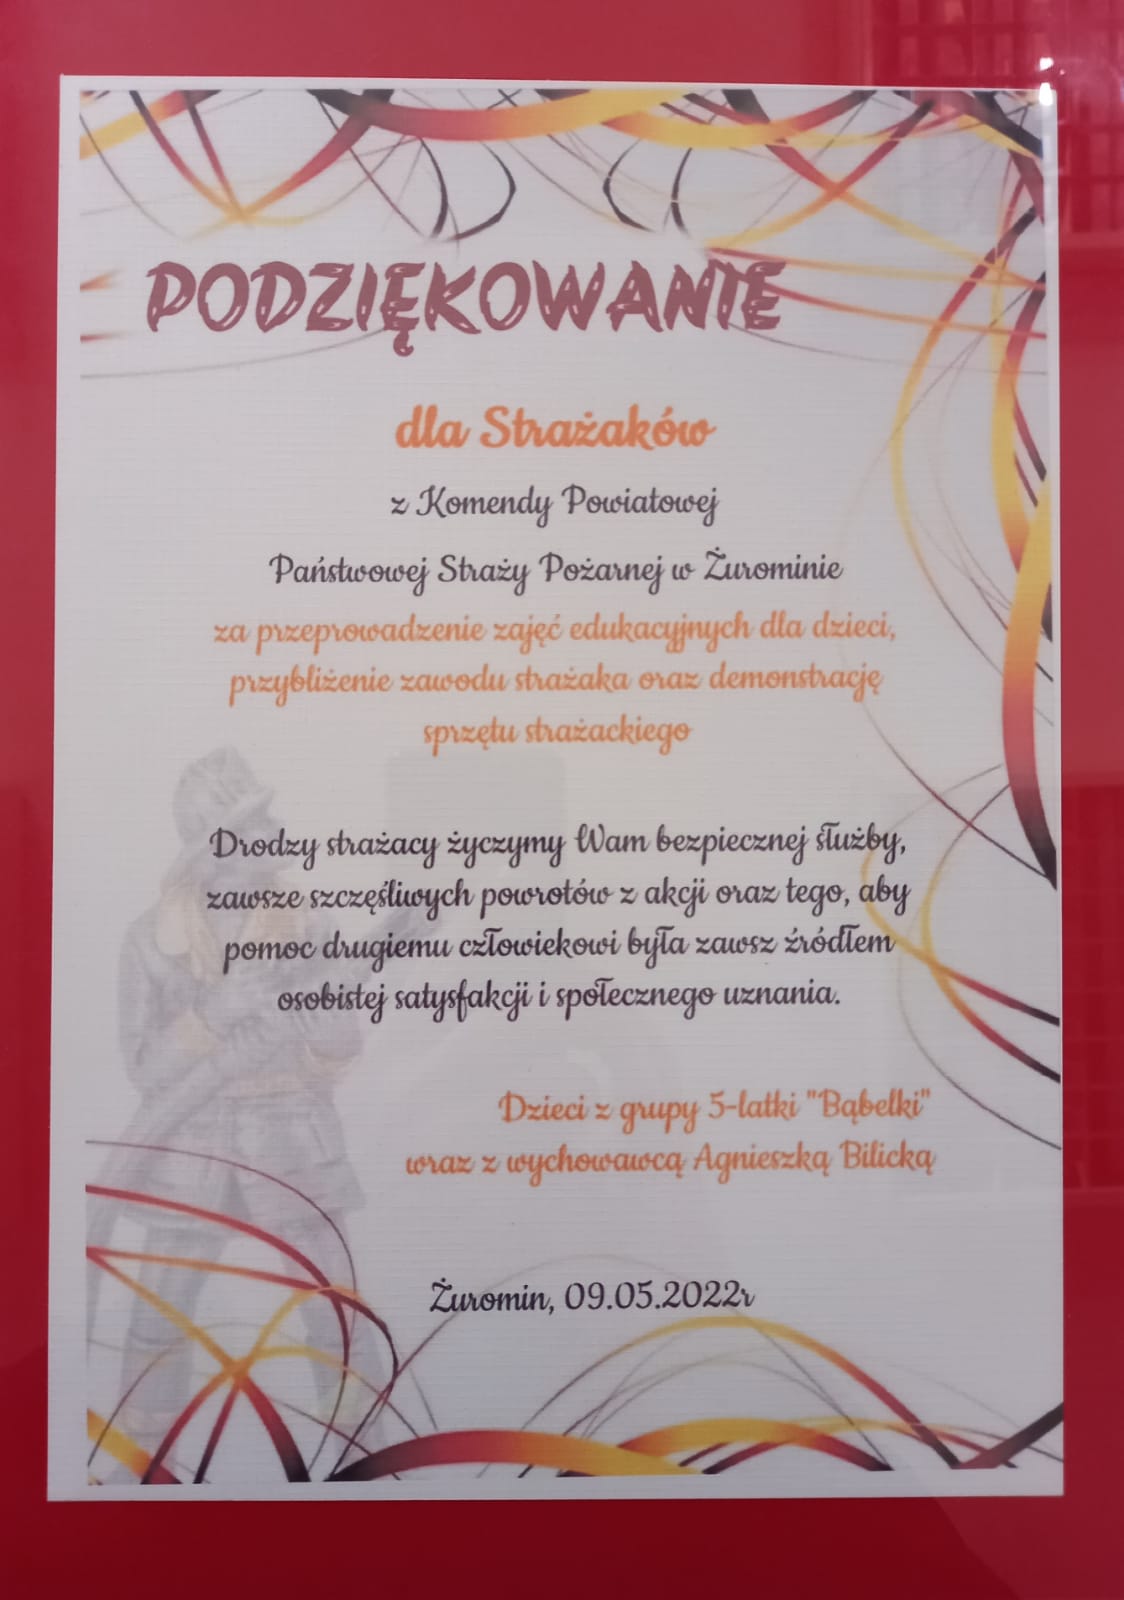 PODZIĘKOWANIE
dla Strażaków
z Komendy Powiatowej
Państwowej Straży Pożarnej w Żurominie
za przeprowadzenie zajęć edukacyjnych dla dzieci,
przybliżenie zawodu strażaka oraz demonstrację
sprzętu strażackiego
Drodzy strażacy życzymy Wam bezpiecznej służby,
zawsze szczęśliwych powrotów z akcji oraz tego, aby
pomoc drugiemu człowiekowi była zawsz źródłem
osobistej satysfakcji i społecznego uznania.
Dzieci z grupy 5-latki "Bąbelki"
wraz z wychowawcą Agnieszką Bilicką
Żuromin, 09.05.2022r